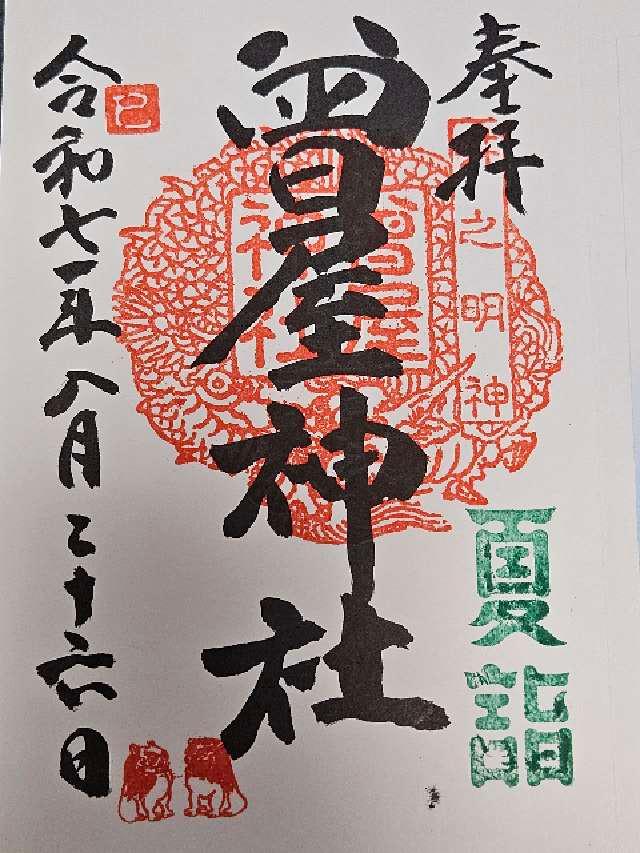 奉拝
之明神
夏詣
曽屋神社
曽屋
神社
令和七年八月二十六日
巳